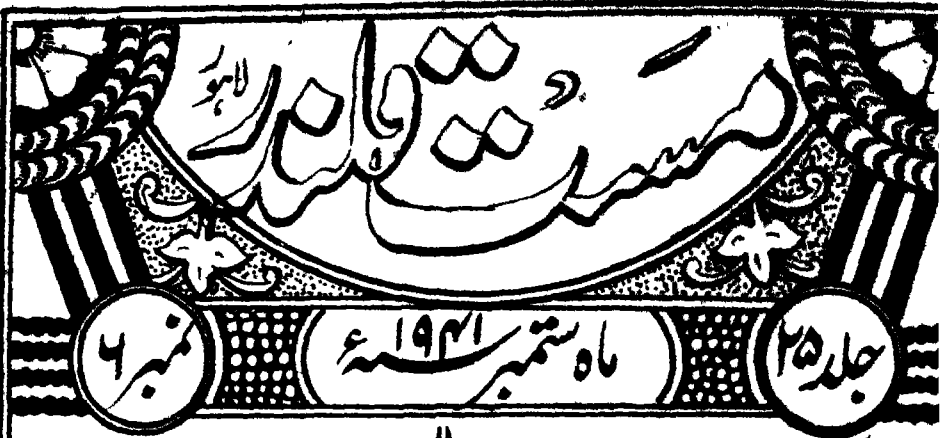 مست قلندر لاہور
جلد ۲۵
ماہ ستمبر سنہ ۱۹۴۱ء
نمبر ۶